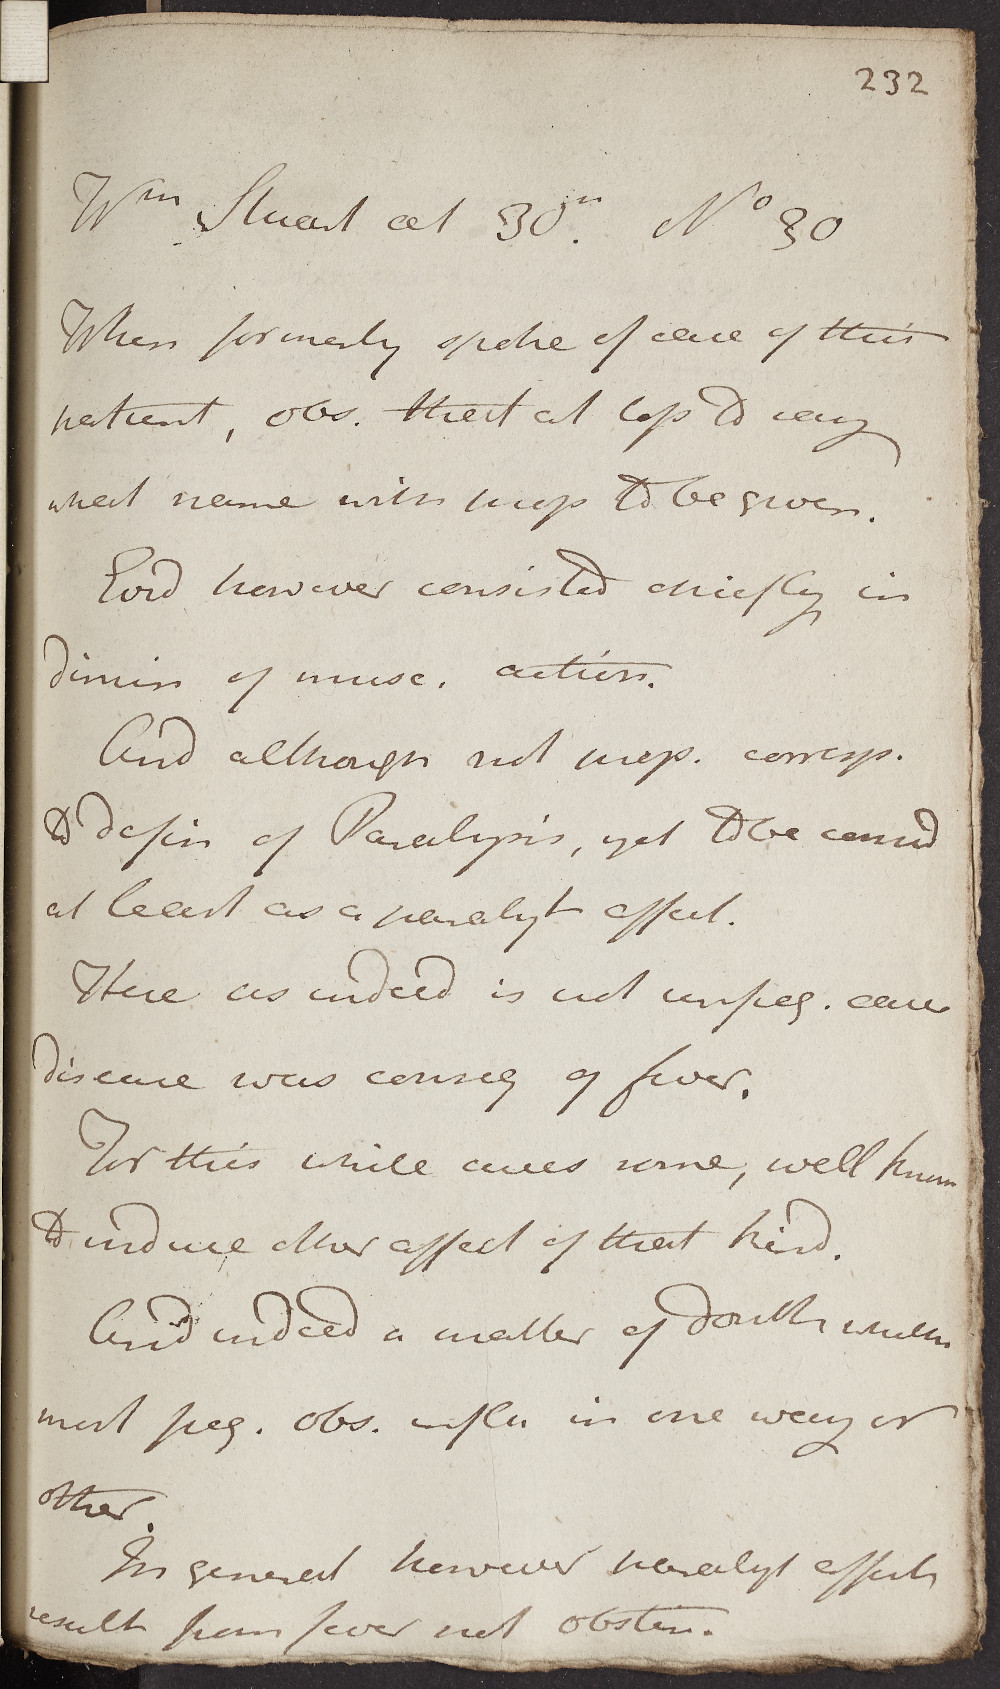 232
Wm Stuart aet 30.. No 30
When formerly spoke of case of this
patient, obs. that at loss to say
what name with prop to be given.
Evid however consisted chiefly in
dimin of musc. action.
And although not prop. corresp.
to defin of Paralysis, yet to be consid
at least as a paralyt affect.
Here as indeed is not unfreq. case
disease was conseq of fever.
For this while cures some, well known
to induce other affect of that kind.
And indeed a matter of doubt whether
most freq. obs. influ in one way or
other.
In general however paralyt affects
result from fever not obstin.